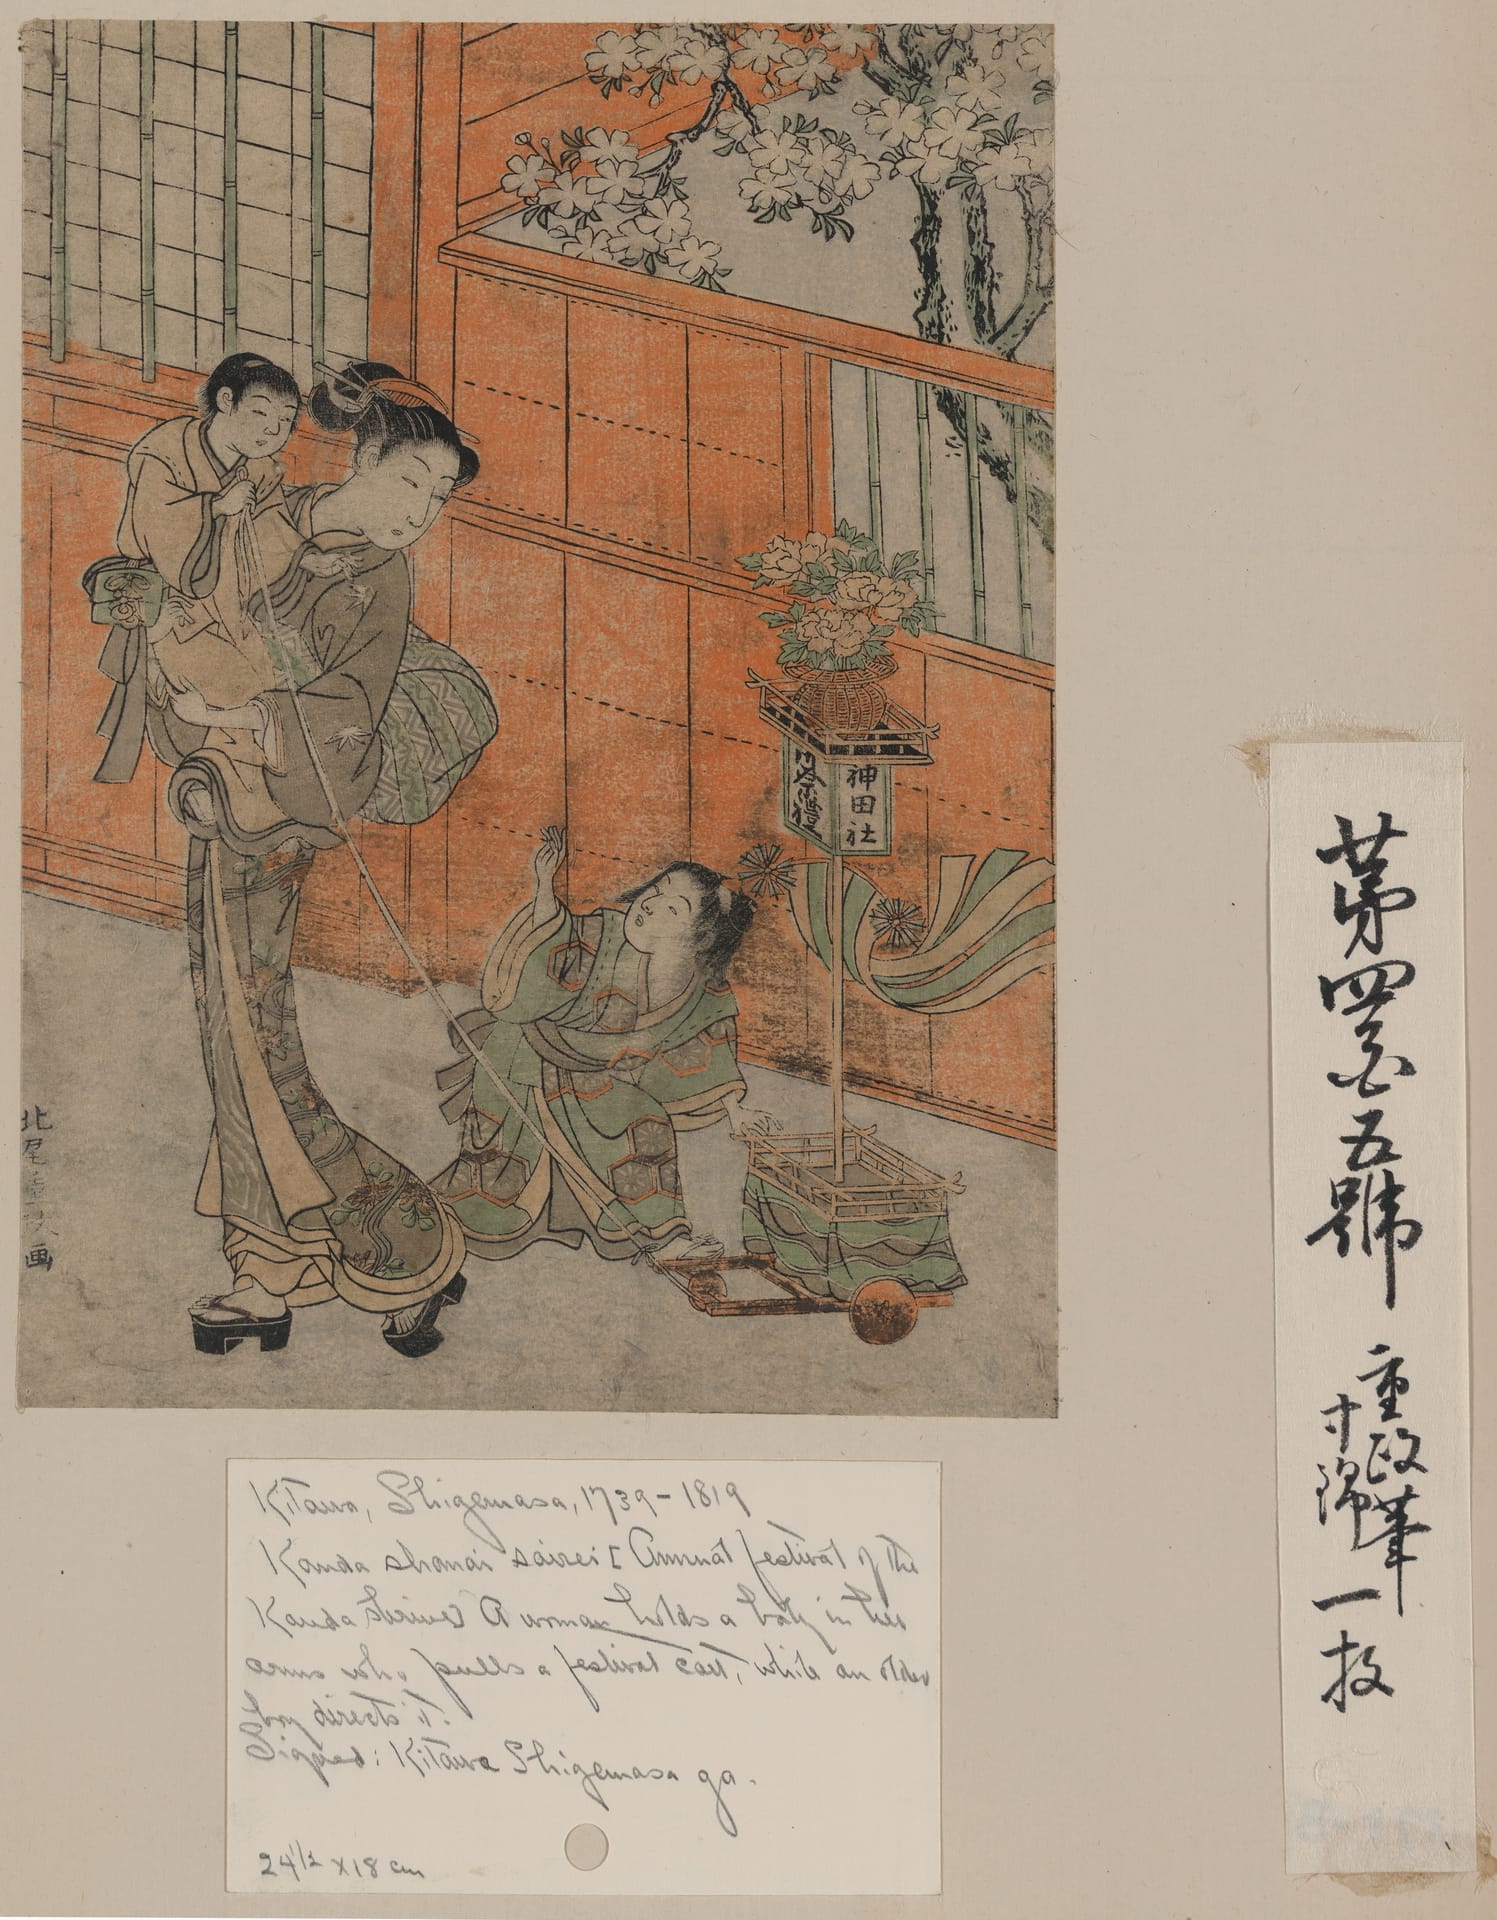 神田社
御祭禮
北尾重政画
Kitawo, Shigemasa, 1739-1819
Kanda shanai sairei [Annual festival of the
Kanda Shrine] A woman holds a baby in her
arms who pulls a festival cart, while an older
boy directs it.
Signed: Kitawo Shigemasa ga.
24 1/2 x 18 cm
第四百五號
重政筆
寸錦
一枚